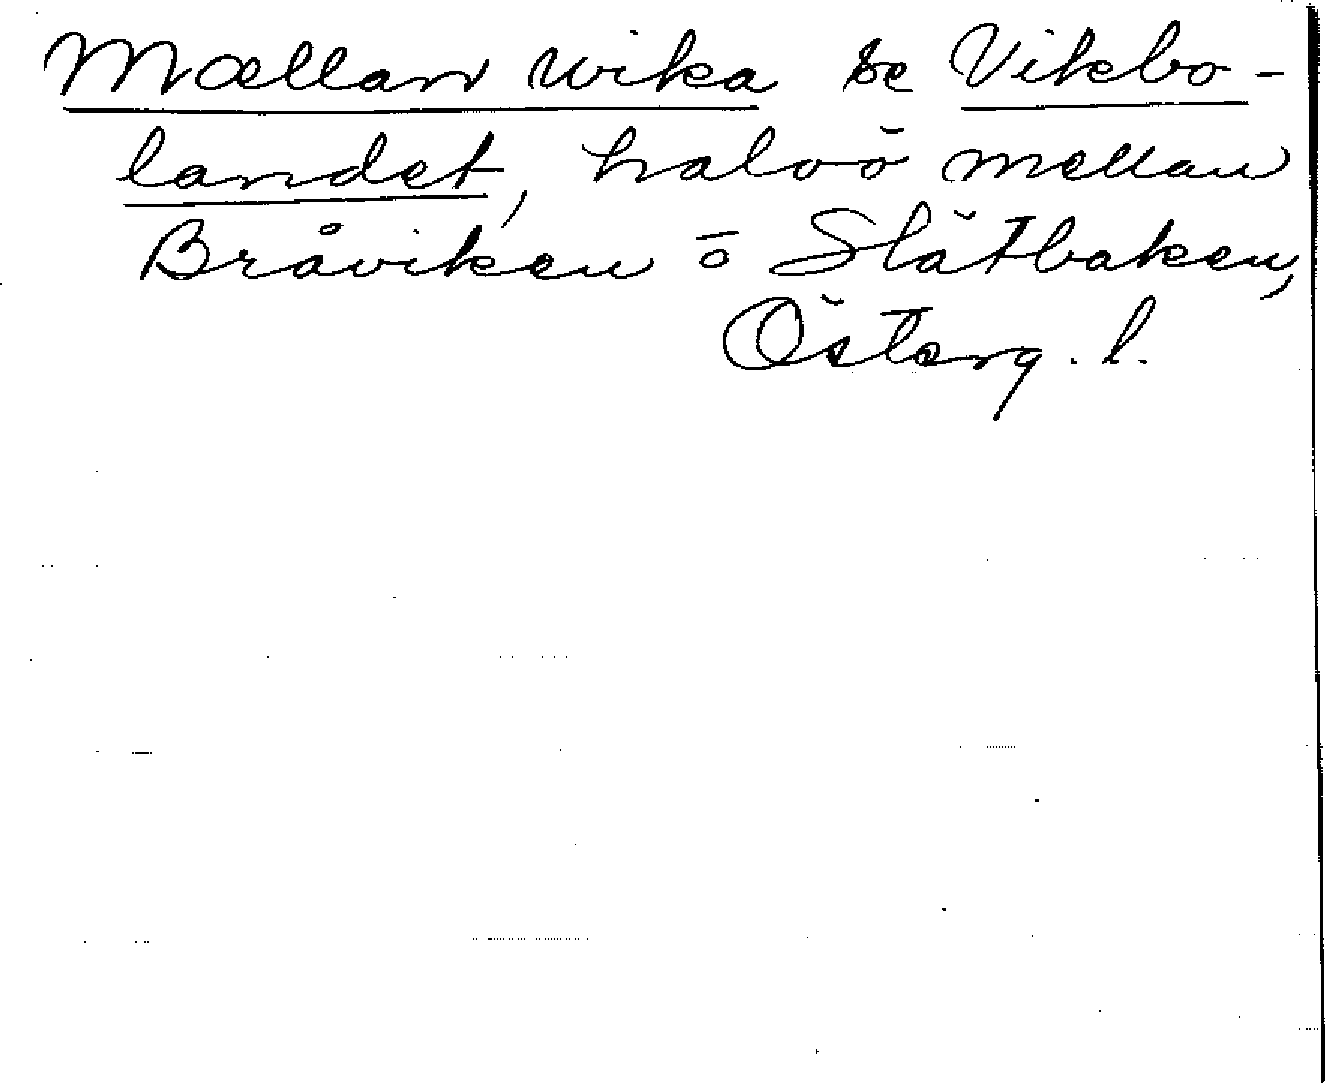 Mællan wika se Vikbo-
landet, halvö mellan
Bråviken o Slätbaken,
Österg. l.